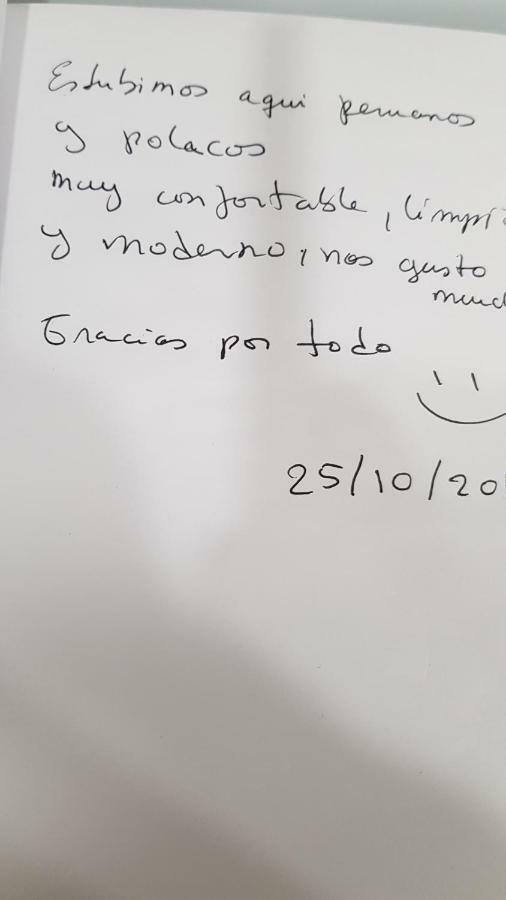 Estubimos aqui peruanos
y polacos
muy confortable, limpi
y moderno, nos gusto
muc
Gracias por todo
25/10/20